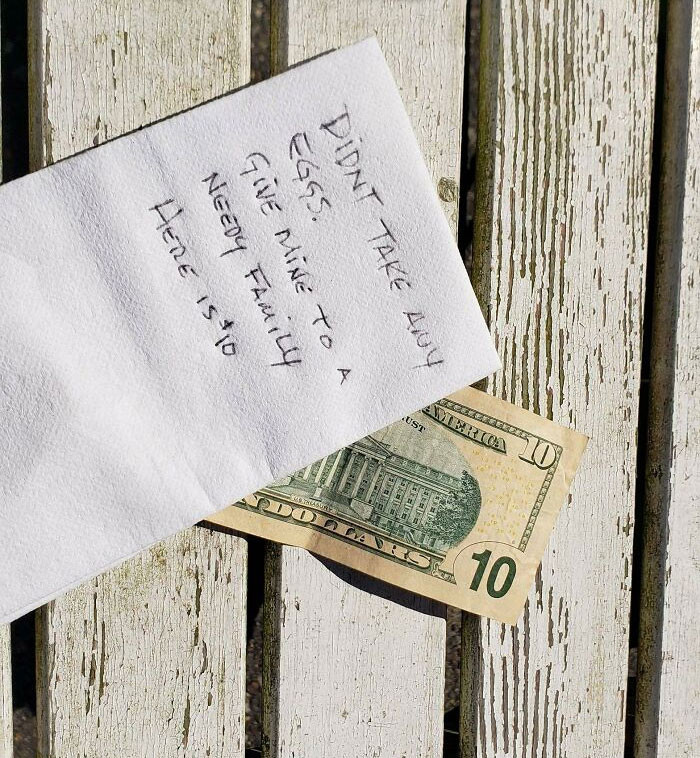 DIDNT TAKE ANY
EGGS.
GIVE MINE TO A
NEEDY FAMILY
HERE IS $10
AMERICA
10
UST
DOLLARS
10